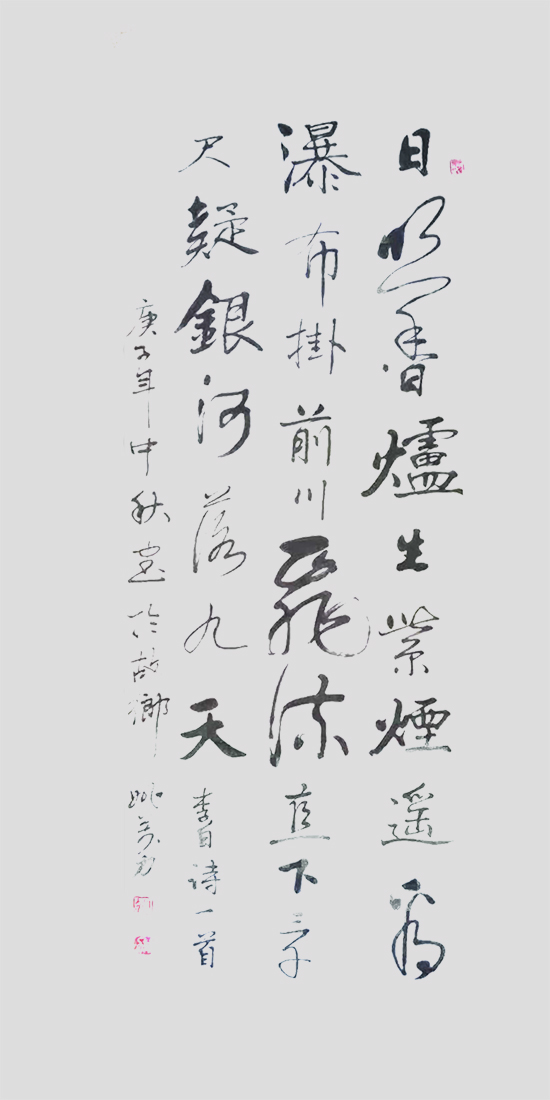 日照香爐生紫煙遥看
瀑布掛前川飛流直下三千
尺疑銀河落九天 李白诗一首
庚子年中秋寫於故鄉 姚